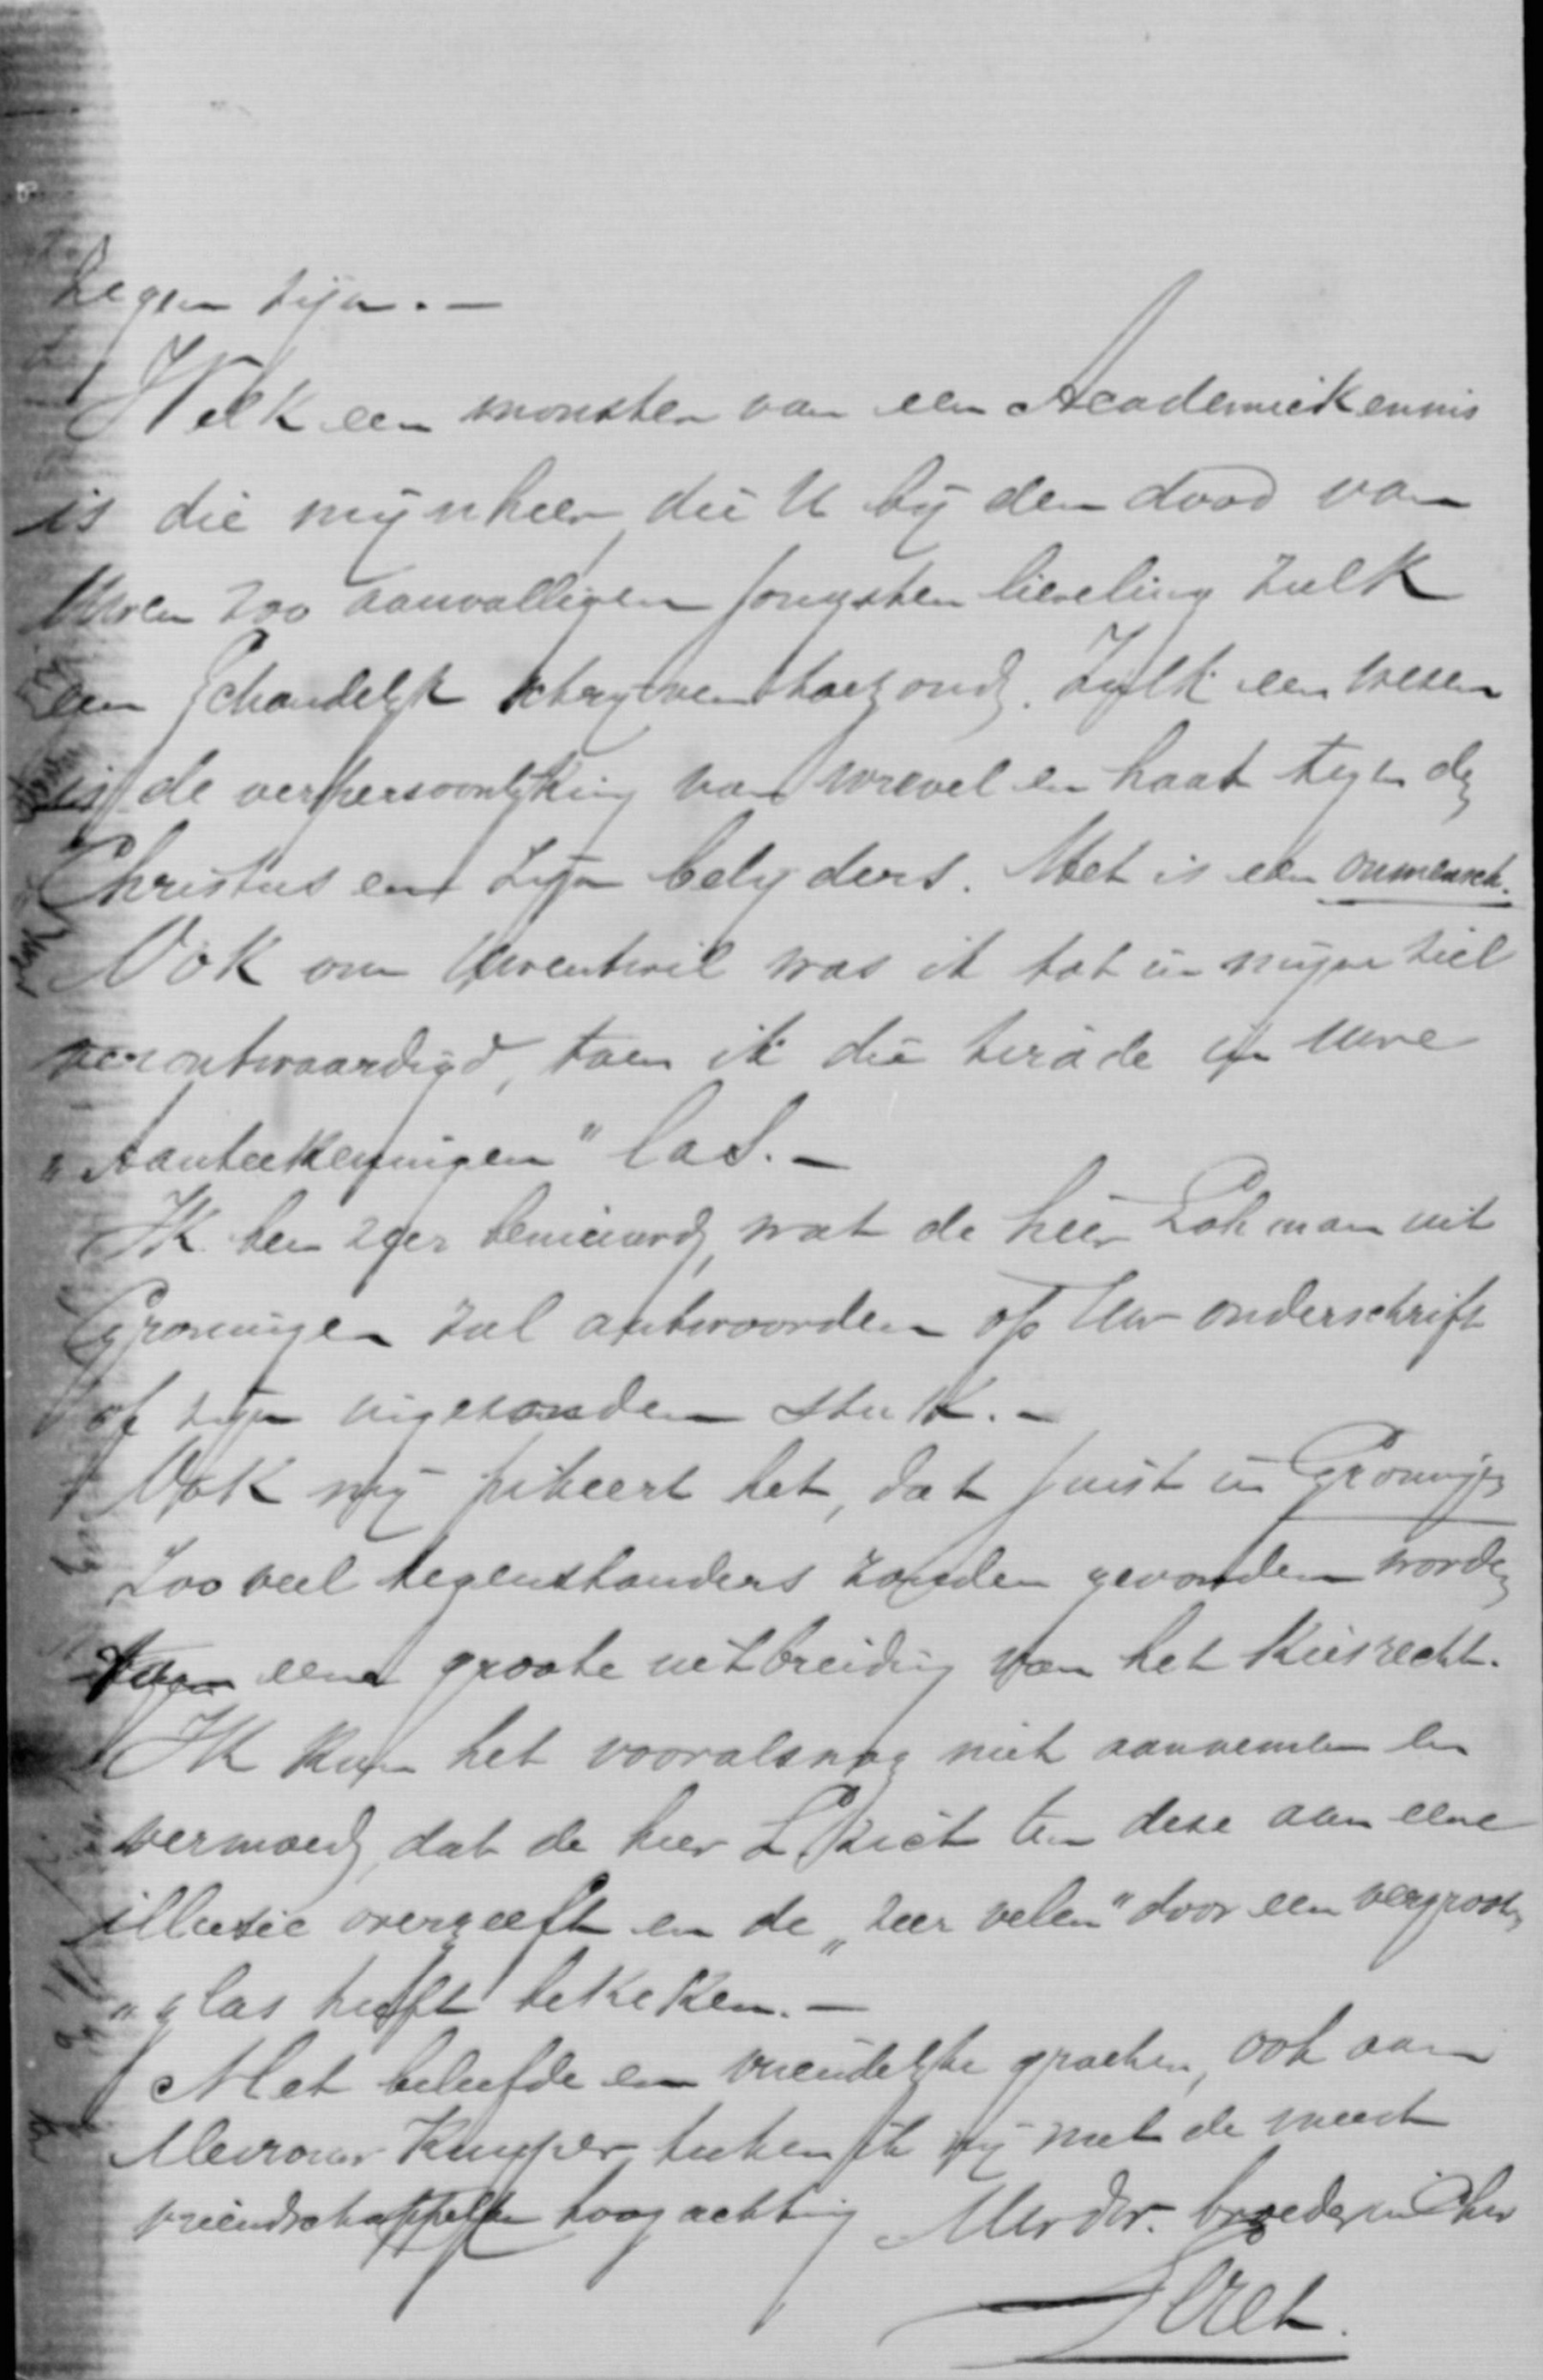 tegen zijn. —
Welk een monster van een Academiekennis
is die mijnheer, die U bij den dood van
Uwen zoo aanvalligen jongsten lieveling zulk
een schandelijk schrijven toezond. Zulk een wezen
is de verpersoonlijking van wrevel en haat tegen de
Christus en zijn belijders. Het is een onmensch.
Ook om Uwentwil was ik tot in mijne ziel
verontwaardigd, toen ik die tirade in uwe
„Aanteekeningen" las. —
Ik ben zeer benieuwd, wat de heer Lohman uit
Groningen zal antwoorden op Uw onderschrift
of zijn ingezonden stuk. —
Ook mij pikeert het, dat juist in Groningen
zooveel tegenstanders zouden gevonden worden
tegen eene groote uitbreiding van het Kiesrecht.
Ik kan het vooralsnog niet aannemen en
vermoed, dat de heer L. zich ten deze aan eene
illusie overgeeft en de „zeer velen" door een vergroot
„glas heeft bekeken. —
Met beleefde en vriendelijke groeten, ook aan
Mevrouw Kuyper, teeken ik mij met de meest
vriendschappelijke hoogachting Uw dw. broeder in Chr